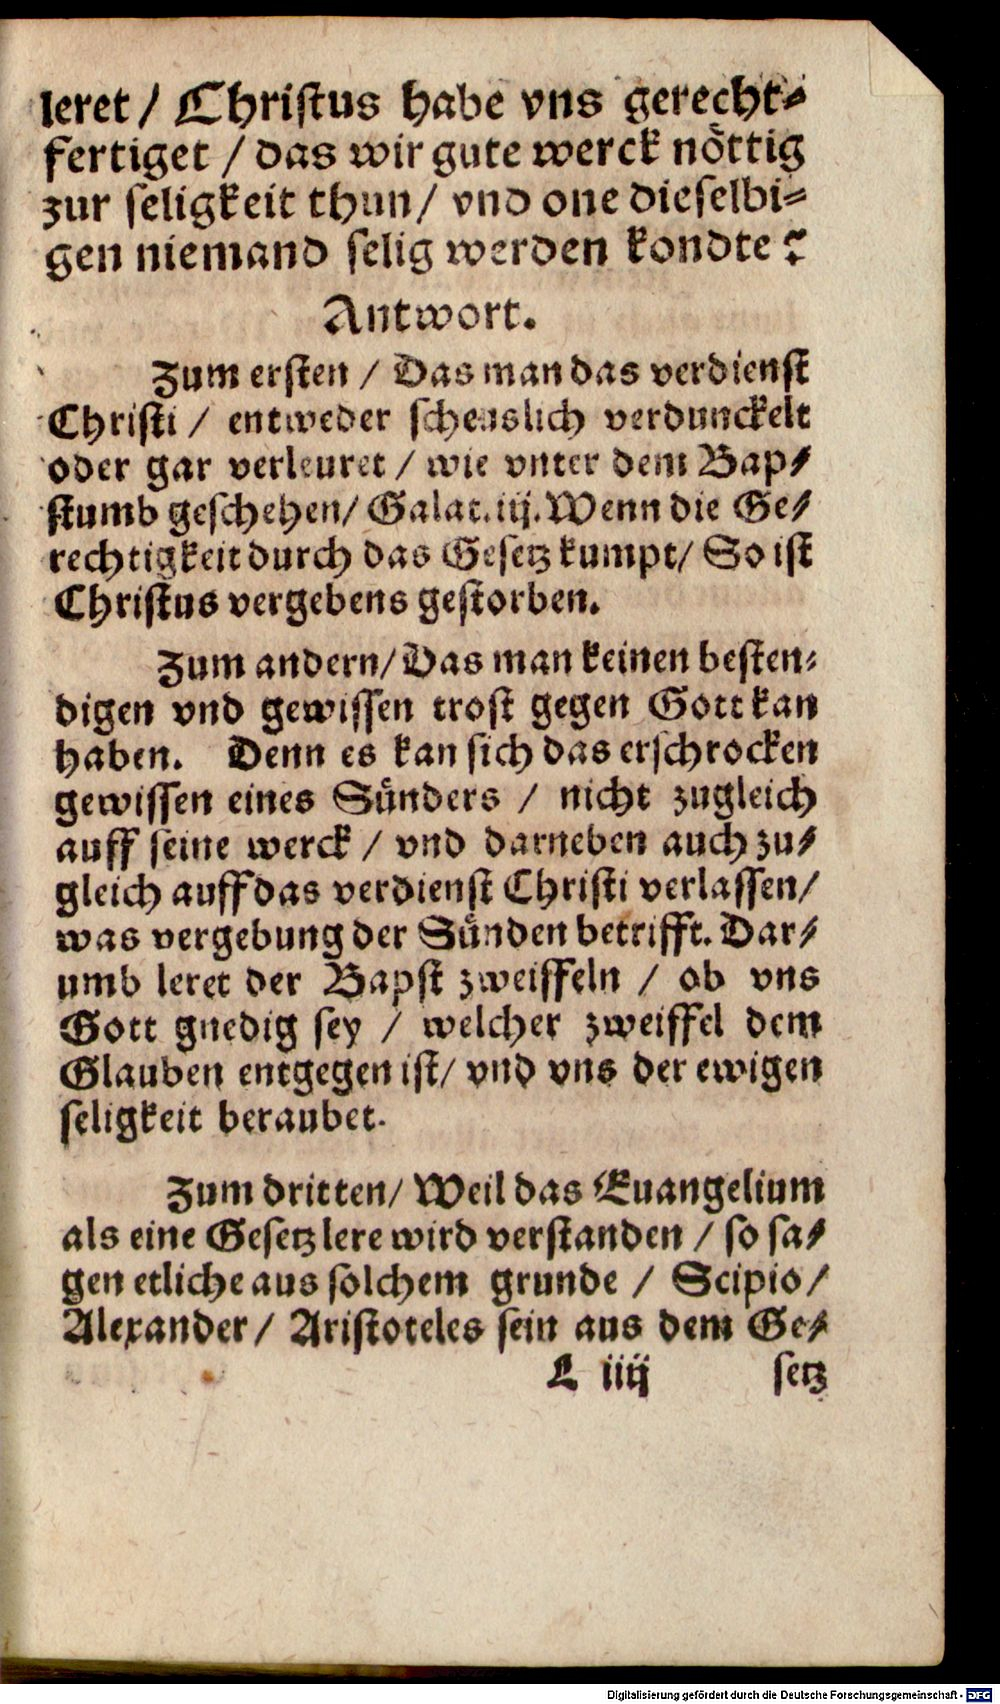 leret / Christus habe vns gerecht-
fertiget / das wir gute werck nöttig
zur seligkeit thun / vnd one dieselbi-
gen niemand selig werden kondte?
Antwort.
Zum ersten / Das man das verdienst
Christi / entweder scheuslich verdunckelt
oder gar verleuret / wie vnter dem Bap-
stumb geschehen / Galat. iij. Wenn die Ge-
rechtigkeit durch das Gesetz kumpt / So ist
Christus vergebens gestorben.
Zum andern / Das man keinen besten-
digen vnd gewissen trost gegen Gott kan
haben. Denn es kan sich das erschrocken
gewissen eines Sünders / nicht zugleich
auff seine werck / vnd darneben auch zu-
gleich auff das verdienst Christi verlassen /
was vergebung der Sünden betrifft. Dar-
umb leret der Bapst zweiffeln / ob vns
Gott gnedig sey / welcher zweiffel dem
Glauben entgegen ist / vnd vns der ewigen
seligkeit beraubet.
Zum dritten / Weil das Euangelium
als eine Gesetz lere wird verstanden / so sa-
gen etliche aus solchem grunde / Scipio /
Alexander / Aristoteles sein aus dem Ge-
L iiij setz
Digitalisierung gefördert durch die Deutsche Forschungsgemeinschaft - DFG